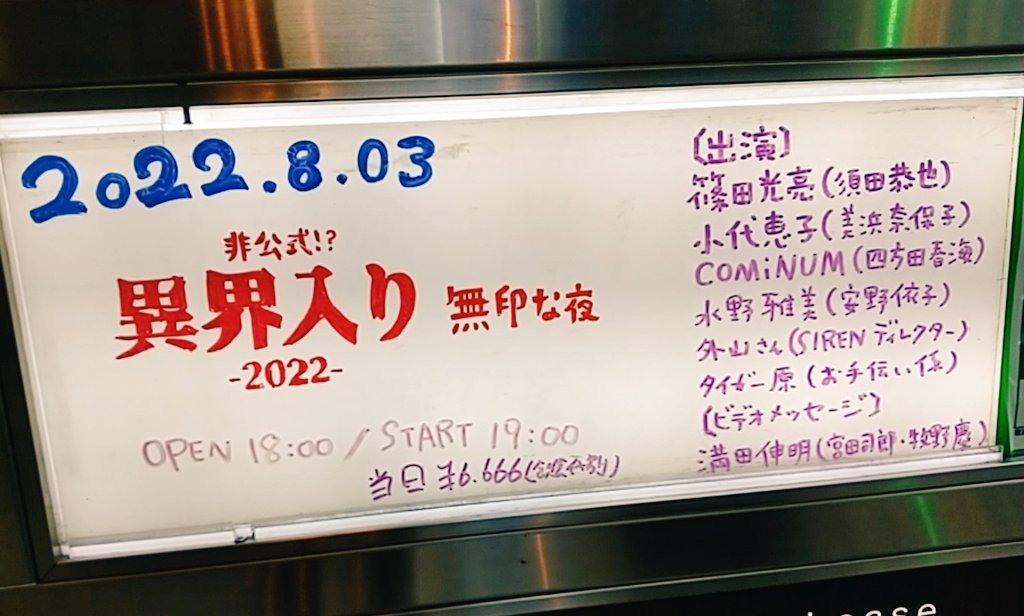 2022.8.03
非公式!?
異界入り 無印な夜
-2022-
OPEN 18:00 / START 19:00
当日 ¥6.666
〔出演〕
篠田光亮(須田恭也)
小代恵子(美浜奈保子)
COMiNUM(四方田春海)
水野雅美(安野依子)
外山さん(SIRENディレクター)
タイガー原(お手伝い係)
〔ビデオメッセージ〕
満田伸明(宮田司郎・牧野慶)